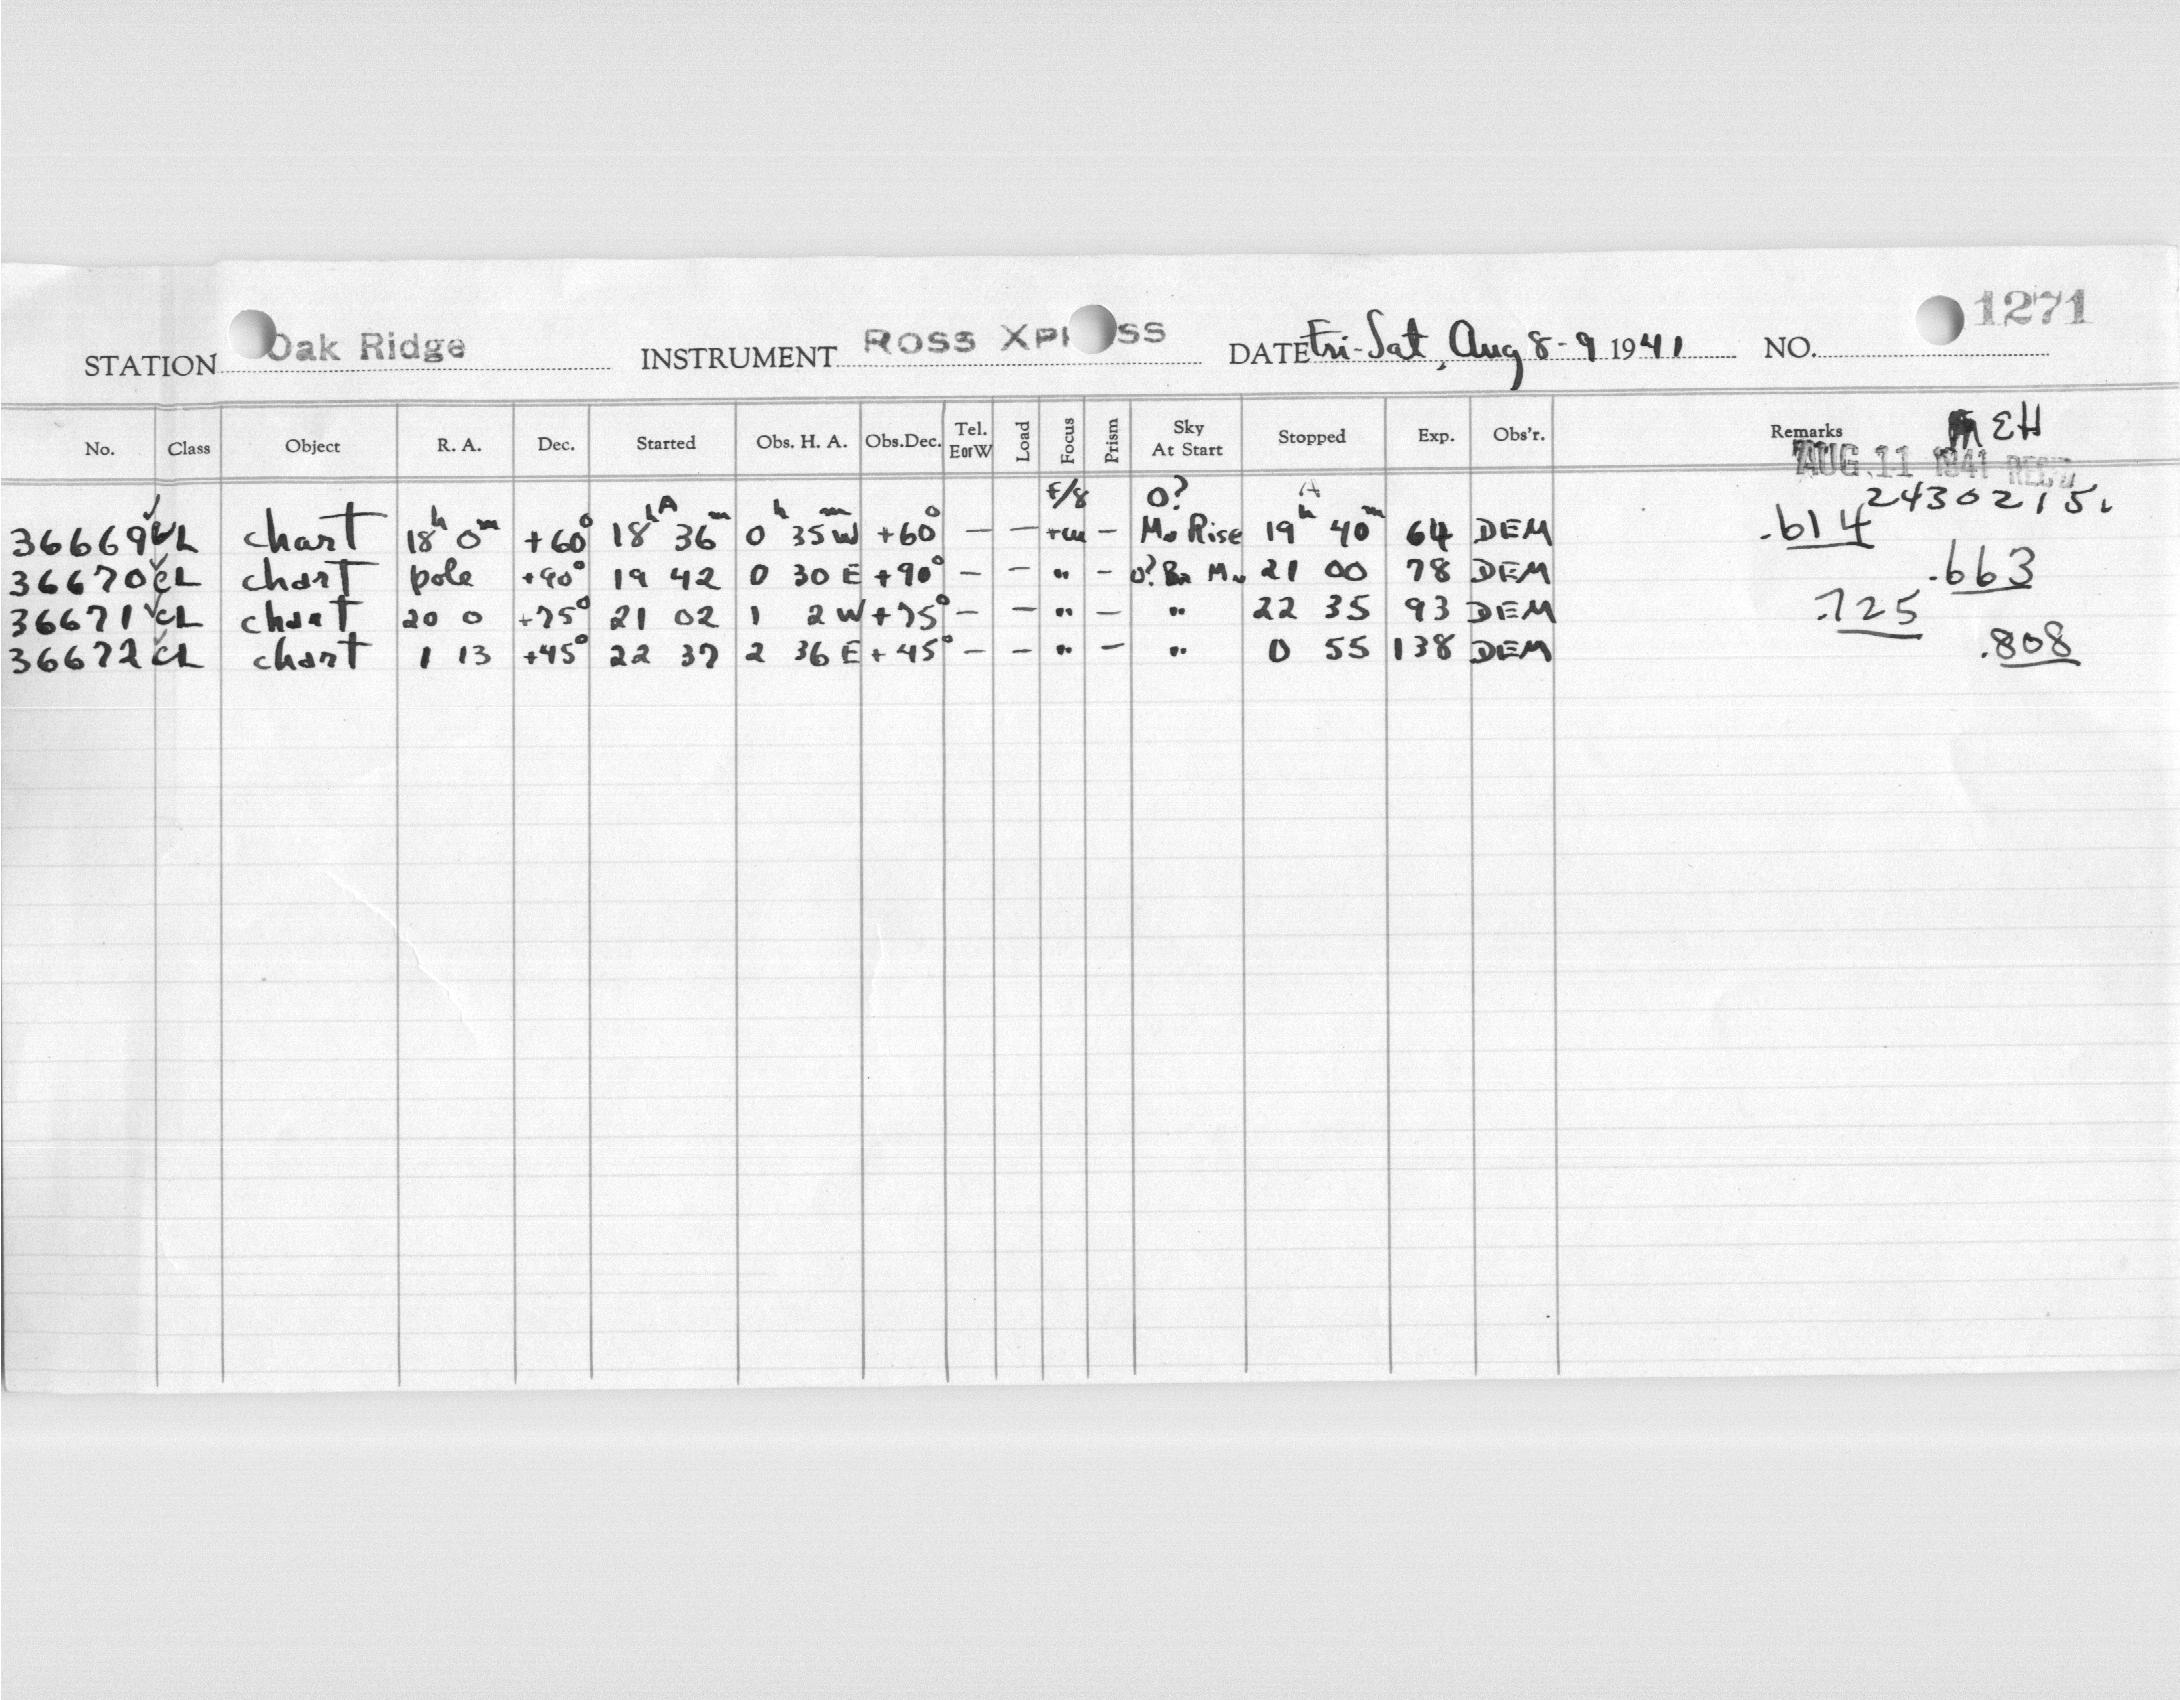 1271
STATION Oak Ridge INSTRUMENT ROSS XPRESS DATE Fri-Sat, Aug 8-9 1941 NO.
No. Class Object R. A. Dec. Started Obs. H. A. Obs.Dec. Tel. EorW Load Focus Prism Sky At Start Stopped Exp. Obs'r. Remarks
EH
AUG 11 1941 REC'D
F/8 0? A 2430215.
36669 CL chart 18h 0m +60° 18hA 36m 0h 35m W +60° — — — Mn Rise 19h 40m 64 DEM .614
36670 CL chart pole +90° 19 42 0 30 E +90° — — " — 0? Br Mn 21 00 78 DEM .663
36671 CL chart 20 0 +75° 21 02 1 2 W +75° — — " — " 22 35 93 DEM .725
36672 CL chart 1 13 +45° 22 37 2 36 E +45° — — " — " 0 55 138 DEM .808